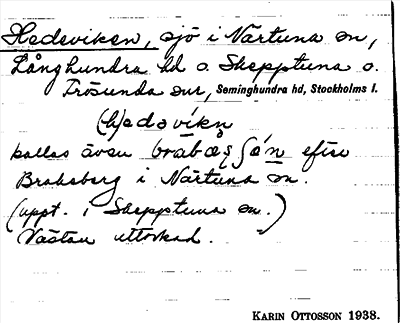 Hedeviken, sjö i Närtuna sn,
Långhundra hd o. Skepptuna o.
Frösunda snr, Seminghundra hd, Stockholms l.
(h)edəvíkn
kallas även bråbæʃʃǿn efter
Braheberg i Närtuna sn.
(uppt. i Skepptuna sn.)
Nästan uttorkad.
KARIN OTTOSSON 1938.